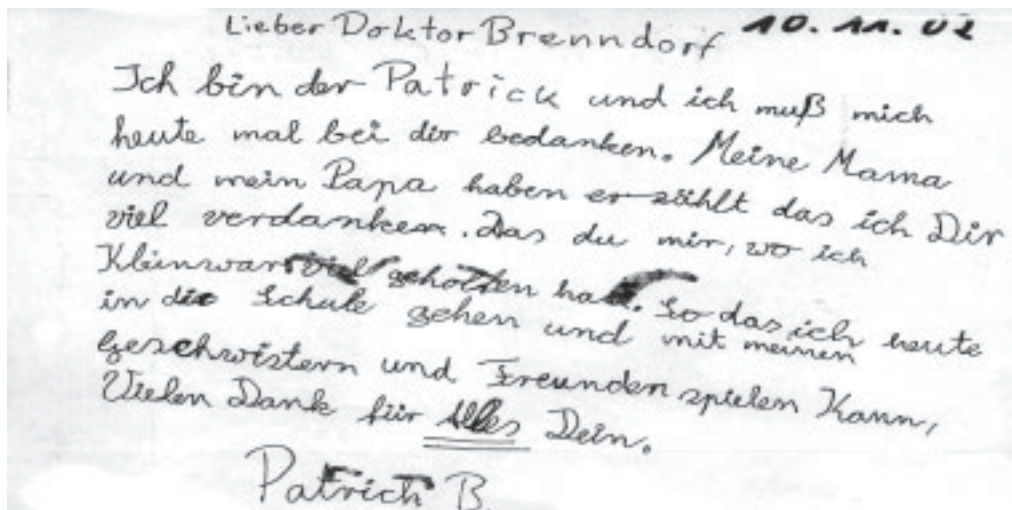 Lieber Doktor Brenndorf 10.11.02
Ich bin der Patrick und ich muß mich
heute mal bei dir bedanken. Meine Mama
und mein Papa haben erzählt das ich Dir
viel verdanken. Das du mir, wo ich
Klein war viel geholfen hast. So das ich heute
in die Schule gehen und mit meinen
Geschwistern und Freunden spielen Kann,
Vielen Dank für Alles Dein.
Patrick B.